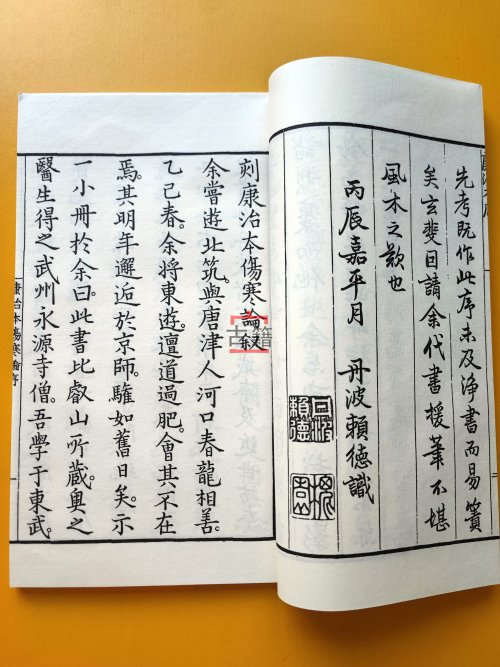 先考既作此序未及淨書而易簀
矣玄斐日請余代書援筆不堪
風木之歎也
丙辰嘉平月 丹波頼徳識
刻康治本傷寒論叙
余嘗遊北筑。與唐津人河口春龍相善。
乙己春。余將東遊。亶道過肥。會其不在
焉。其明年邂逅於京師。驩如舊日矣。示
一小冊於余曰。此書比叡山所藏。奧之
醫生得之武州永源寺僧。吾學于東武。
康治本傷寒論序
古籍